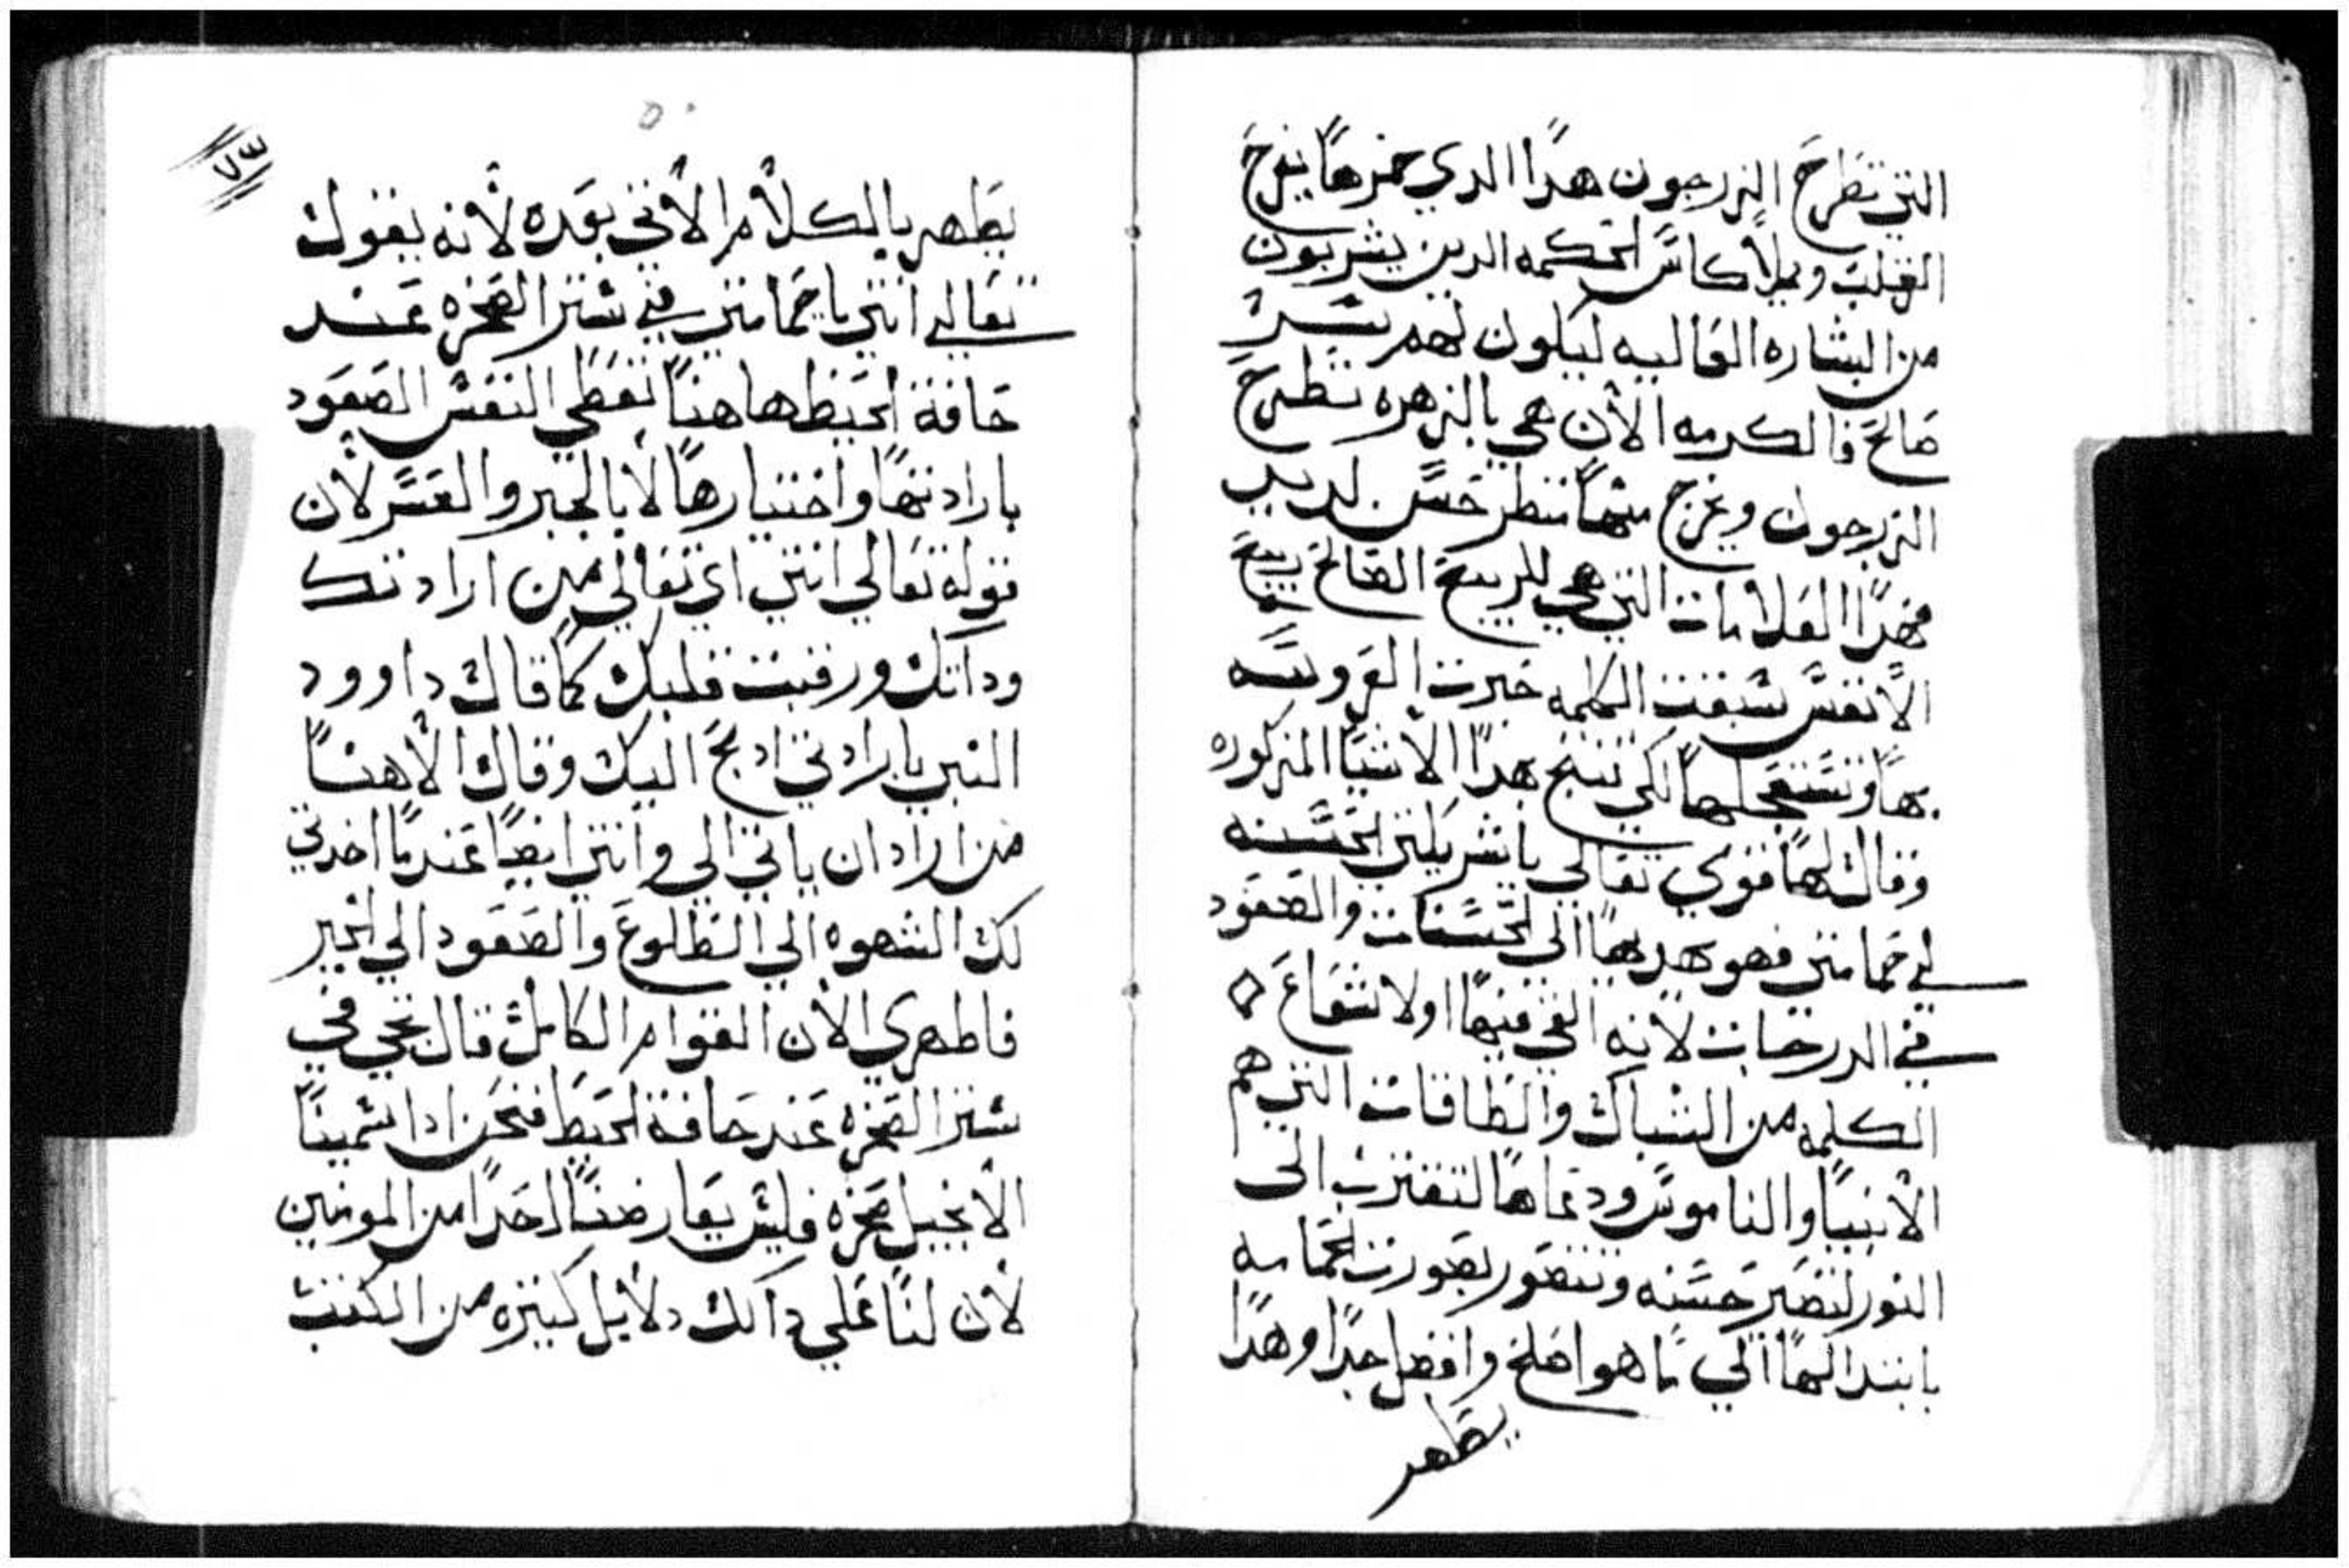 التي تطرح الزرجون هدا الدي خمرها يفرح
القلب ويملا كاس الحكمه الدين يشربون
من البشاره العاليه ليكون لهم سر
صالح فالكرمه الان هي بالزهره تطرح
الزرجون ويخرج منها منظر حسن لديد
فهدا العلامات التي هي للربيع الصالح ربيع
الانفس سبقت الكلمه خبرت العروسه
بها وتستعجلها لكي تنتج هدا الاشيا المذكوره
وقالت لها قومي تعالي يا شريكتي الحسنه
لي حمامتي فهو يهديها الى الحسنات والصعود
في الدرجات لانه القي فيها اولا شعاع
الكلمه من الشباك والطاقات التي هم
الانبيا والناموس ودعاها لتقترب الى
النور لتصير حسنه وتتصور بصورت الحمامه
بابتدالها الي ما هو اصلح وافضل جدا وهدا
يظهر
٥٠
٧٣
يظهر بالكلام الاتي بعده لانه يقول
تعالي انتي يا حمامتي في ستر الصخره عند
حافة الحيط هاهنا تعطي النفس الصعود
بارادتها واختيارها لا بالجبر والعسر لان
قوله تعالي انتي اي تعالي من ارادتك
وداتك ورقبت قلبك كما قال داوود
النبي بارادتي ادبح اليك وقال الاهنا
من اراد ان ياتي الي وانتي ايضا عندما اخدتي
لك الشهوه الي الطلوع والصعود الي الخير
فاظهري الان القوام الكامل قال تجي في
ستر الصخره عند حافة الحيط فنحن ادا سمينا
الانجيل صخره فليس يعارضنا احدا من المومنين
لان لنا علي دالك دلايل كتيره من الكتب